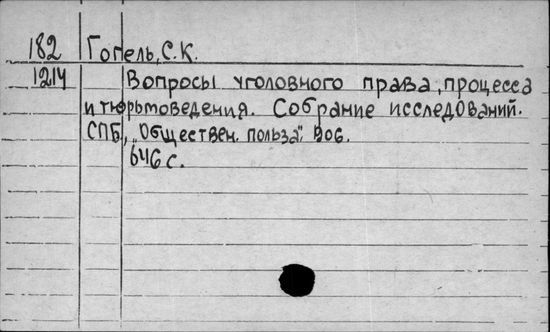 182 Гогель, С.К.
1214 Вопросы уголовного права, процесса
и тюрьмоведения. Собрание исследований.
СПБ, "Обществен. польза", 906.
646 с.